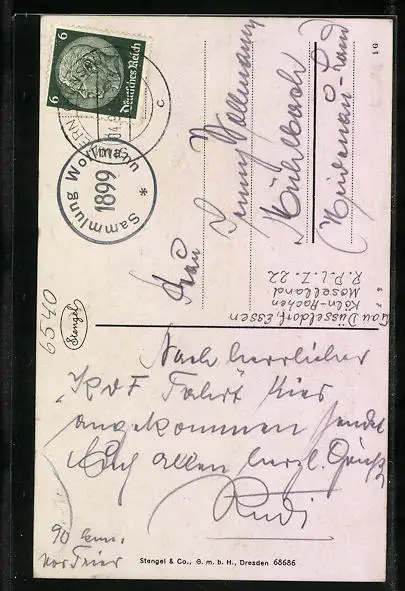 6
6
Deutsches Reich
C
Sammlung Wortmann
1899
*
1 G
Frau
Jenny Vollmann
Mühlbach
Gau Düsseldorf, Essen
Köln-Aachen
Moselland
R. P. l. Z. 22
6540
Stengel
Nach herrlicher
"KdF Fahrt" hier
angekommen sendet
Euch allen herzl. Grüße
Rudi
90 km.
vor Trier
Stengel & Co., G. m. b. H., Dresden 68686